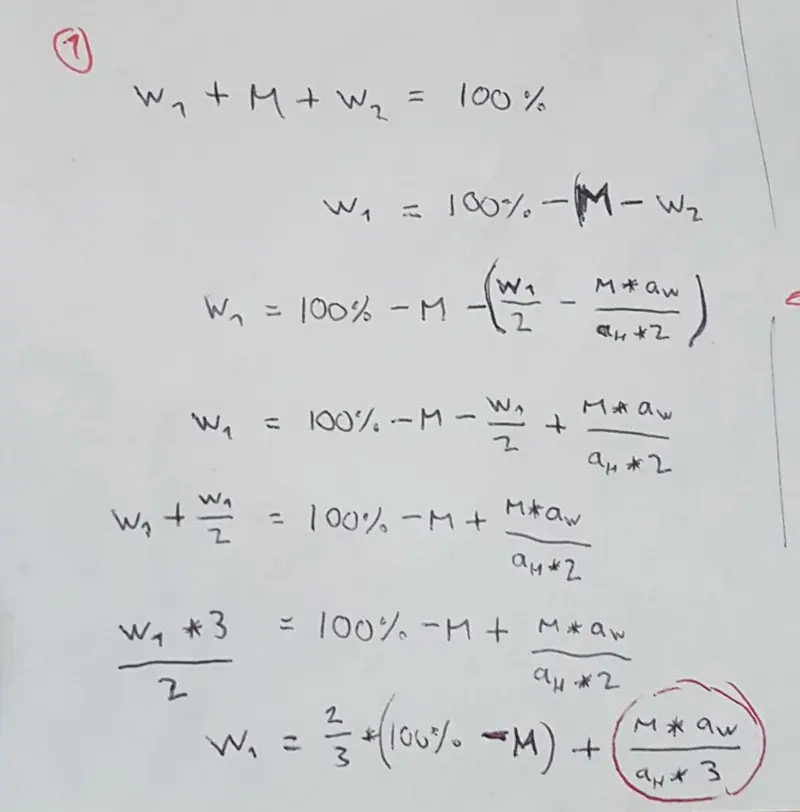 1
W₁ + M + W₂ = 100%
W₁ = 100% - M - W₂
W₁ = 100% - M - (W₁/2 - (M * a_W)/(a_H * 2))
W₁ = 100% - M - W₁/2 + (M * a_W)/(a_H * 2)
W₁ + W₁/2 = 100% - M + (M * a_W)/(a_H * 2)
(W₁ * 3)/2 = 100% - M + (M * a_W)/(a_H * 2)
W₁ = 2/3 * (100% - M) + (M * a_W)/(a_H * 3)